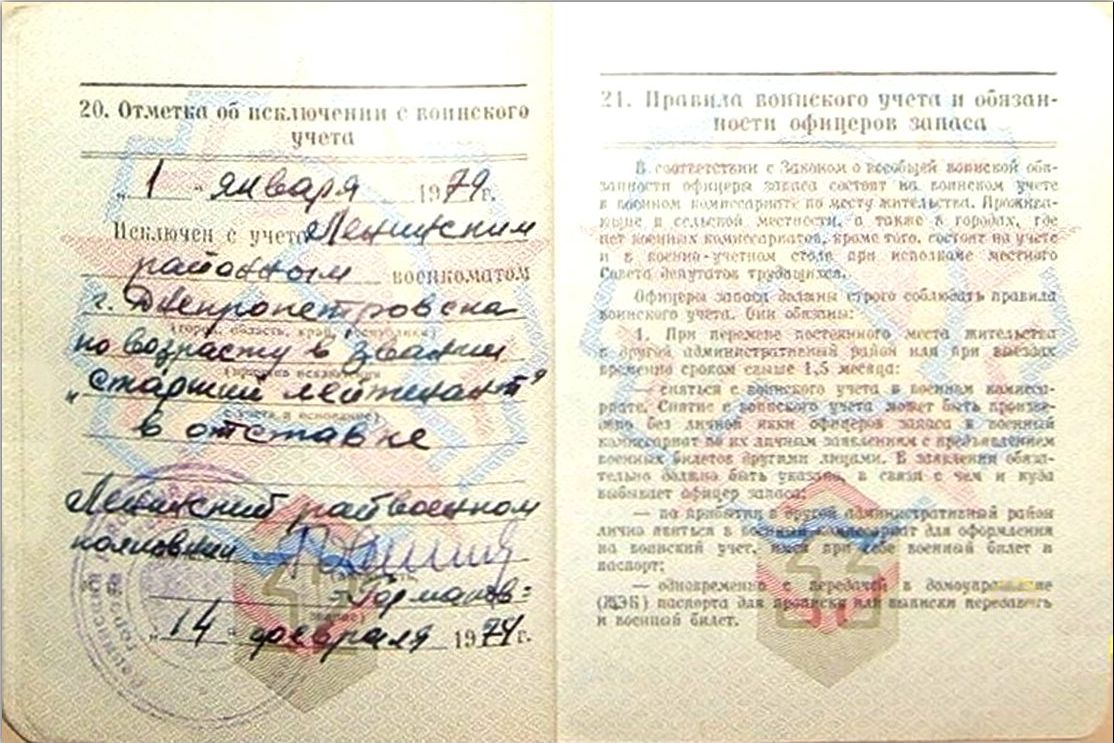 20. Отметка об исключении с воинского
учета
„ 1 “ января 1974г.
Исключен с учета Ленинским
районным военкоматом
г. Днепропетровска
(город, область, край, республика)
по возрасту в звании
„старший лейтенант“
с учета и основание)
в отставке
Ленинский райвоенком
полковник
=Горманов=
„ 14 “ февраля 1974г.
21. Правила воинского учета и обязан-
ности офицеров запаса
В соответствии с Законом о всеобщей воинской обя-
занности офицеры запаса состоят на воинском учете
в военном комиссариате по месту жительства. Прожива-
ющие в сельской местности, а также в городах, где
нет военных комиссариатов, кроме того, состоят на учете
и в военно-учетном столе при исполкоме местного
Совета депутатов трудящихся.
Офицеры запаса должны строго соблюдать правила
воинского учета. Они обязаны:
1. При перемене постоянного места жительства
в другой административный район или при выездах
временно сроком свыше 1,5 месяца:
— сняться с воинского учета в военном комисса-
риате. Снятие с воинского учета может быть произве-
дено без личной явки офицеров запаса в военный
комиссариат по их личным заявлениям с предъявлением
военных билетов другими лицами. В заявлении обяза-
тельно должно быть указано, в связи с чем и куда
выбывает офицер запаса;
— по прибытии в другой административный район
лично явиться в военный комиссариат для оформления
на воинский учет, имея при себе военный билет и
паспорт;
— одновременно с передачей в домоуправление
(ЖЭК) паспорта для прописки или выписки передавать
и военный билет.